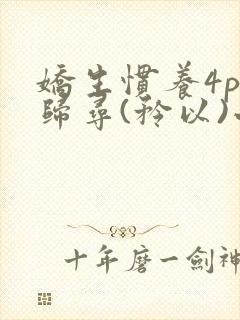 嬌生慣養4p
歸尋(矜以)
十年磨一劍神